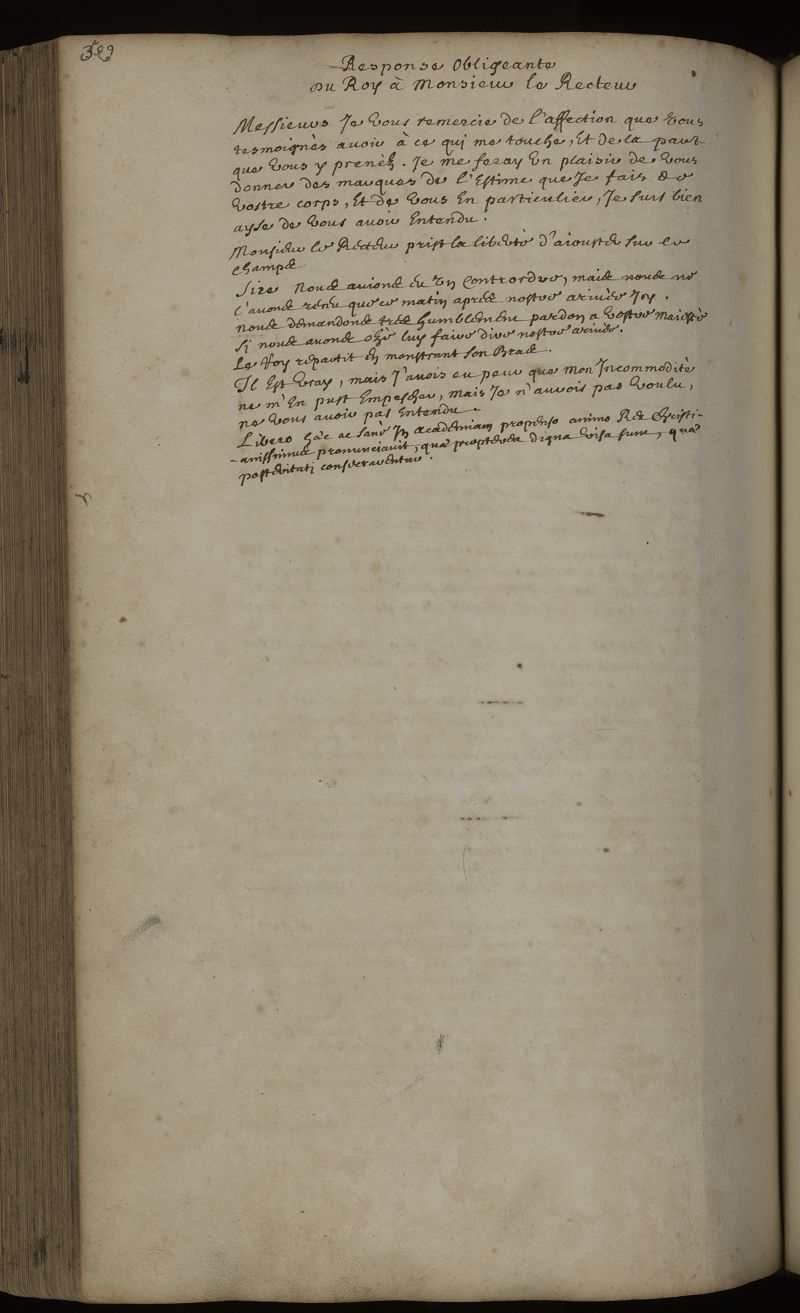 389
Response Obligeante
Du Roy à Monsieur le Recteur
Messieurs Je Vous remercie de l'affection que Vous
tesmoignès avoir à ce qui me touche, Et de la part
que Vous y prenèz. Je me feray Un plaisir de Vous
donner des marques de l'Estime que Je fais de
Vostre corps, Et de Vous En particulier, Je suis bien
ayse de Vous avoir Entendu.
Monsieur le Recteur prist la libertè d'aiouster sur le
champs
Sire Nous avions eu Un Contrordre, mais nous ne
l'avons reçeu que ce matin aprés nostre arivèe Icy.
Nous demandons trés humblement pardon a Vostre Maiestè
Si nous avons ozé luy faire dire nostre arivèe.
Le Roy repartit En monstrant son Bras.
Il Est Vray, mais J'avois eu peur que Mon Incommoditè
ne m'En pust Empescher, mais Je n'aurois pas Voulu,
ne Vous avoir pas Entendu.
Libero hæc ac sanè In Academiam propenso animo Rex Christi-
-anissimus pronunciavit, quæ proptereà digna Visa sunt, quæ
posteritati conserventur.